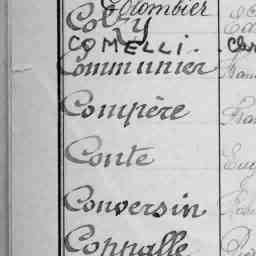 Colombier
Coly
COMELLI.
Communier
Compère
Conte
Conversin
Coppalle